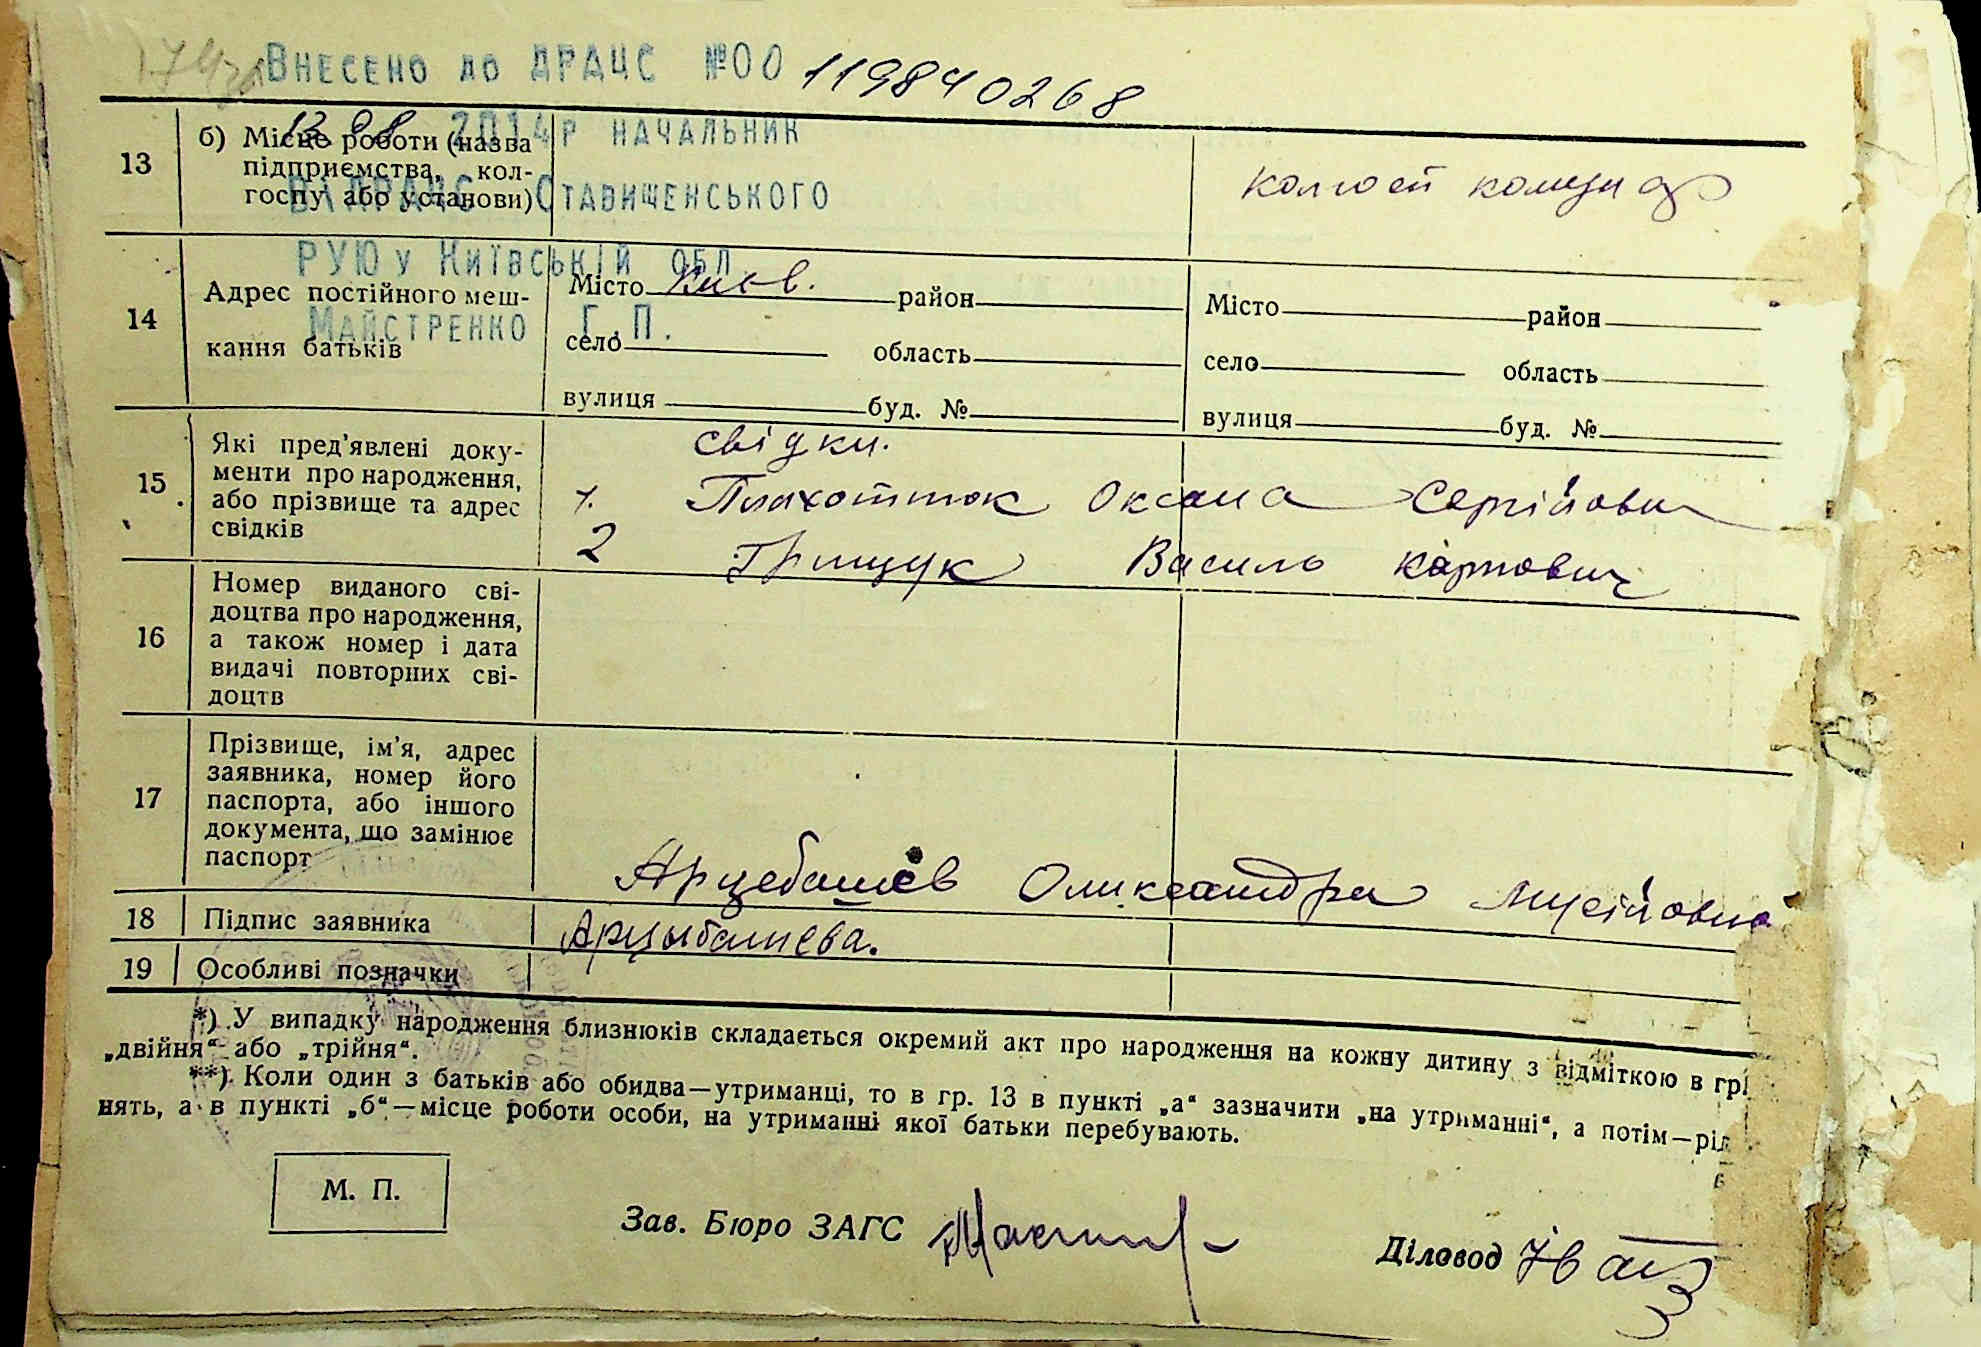 Внесено до ДРАЦС №00 119840268
13 08 2014р начальник
ВДРАЦС Ставищенського
РУЮ у Київській обл
Майстренко Г.П.
13
б) Місце роботи (назва
підприємства, кол-
госпу або установи)
колгосп
14
Адрес постійного меш-
кання батьків
Місто Киев. район
село область
вулиця буд. №
Місто район
село область
вулиця буд. №
15
Які пред'явлені доку-
менти про народження,
або прізвище та адрес
свідків
свідки.
1. Плахотнюк Оксана Сергійовн
2 Грищук Василь Карпович
16
Номер виданого сві-
доцтва про народження,
а також номер і дата
видачі повторних сві-
доцтв
17
Прізвище, ім'я, адрес
заявника, номер його
паспорта, або іншого
документа, що замінює
паспорт
Арцебашев Олександра Мусійовна
18 Підпис заявника Арцыбашева.
19 Особливі позначки
*) У випадку народження близнюків складається окремий акт про народження на кожну дитину з відміткою в грі
„двійня“ або „трійня“.
**) Коли один з батьків або обидва—утриманці, то в гр. 13 в пункті „а“ зазначити „на утриманні“, а потім—рід
нять, а в пункті „б“—місце роботи особи, на утриманні якої батьки перебувають.
М. П.
Зав. Бюро ЗАГС
Діловод